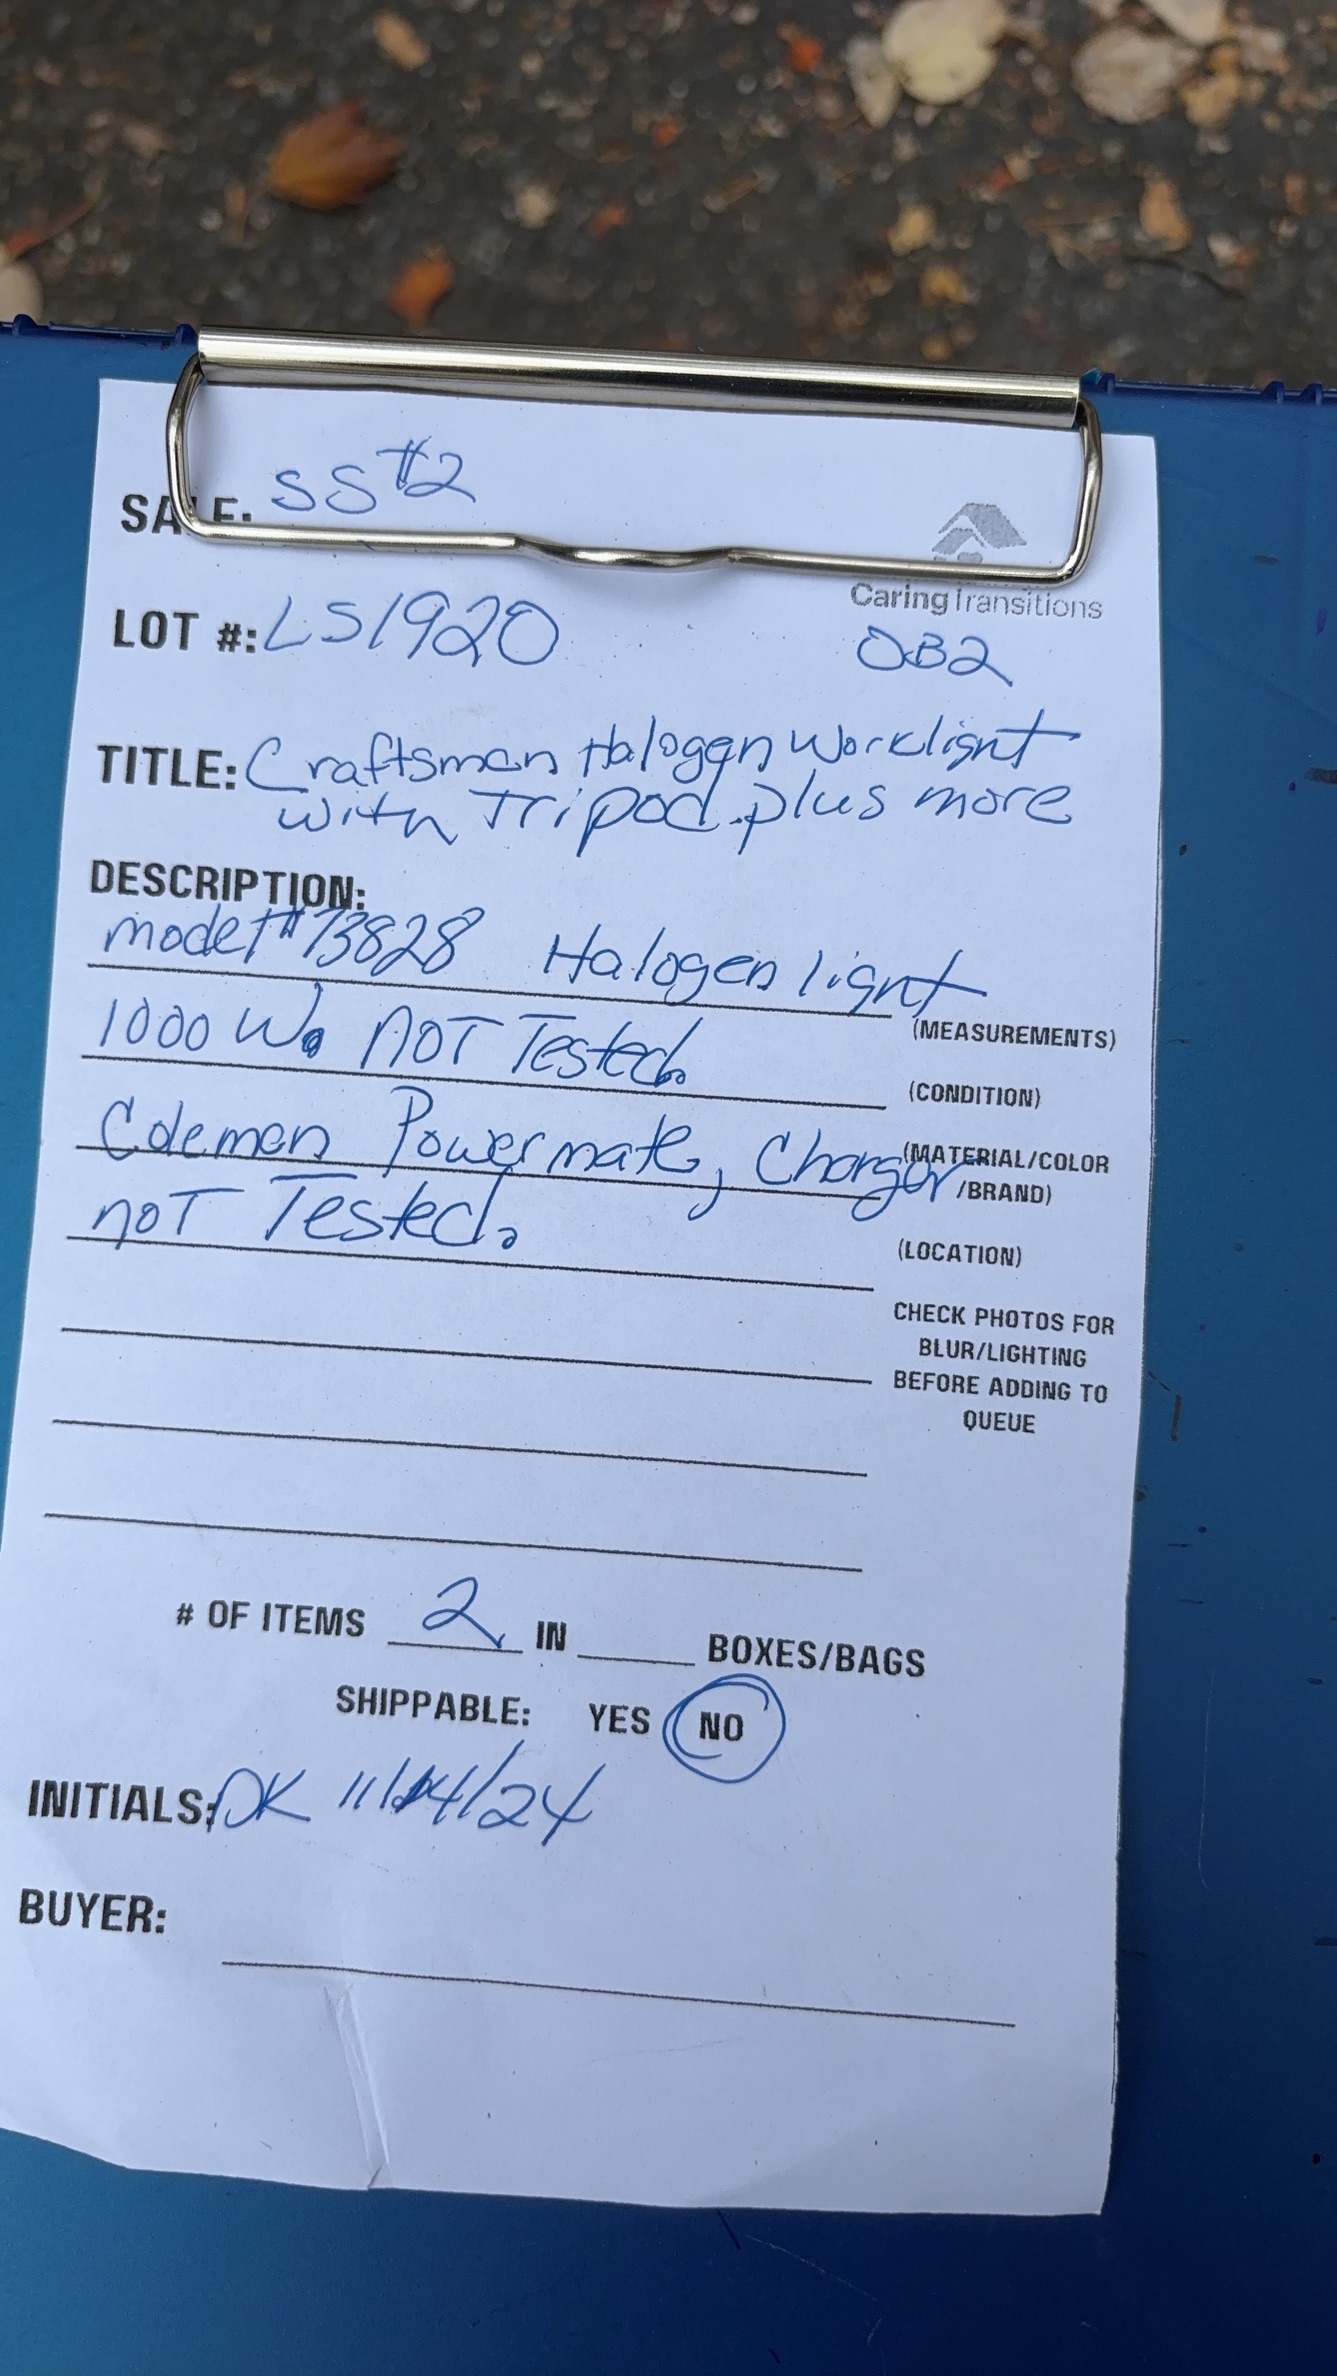 SALE: SS #2
CaringTransitions
LOT #: LS1920
OB2
TITLE: Craftsman Halogen Worklight
with Tripod. plus more
DESCRIPTION:
model # 73828 Halogen light
(MEASUREMENTS)
1000 W. NOT Tested.
(CONDITION)
Coleman Powermate, Charger
(MATERIAL/COLOR
/BRAND)
noT Tested.
(LOCATION)
CHECK PHOTOS FOR
BLUR/LIGHTING
BEFORE ADDING TO
QUEUE
# OF ITEMS 2 IN BOXES/BAGS
SHIPPABLE: YES NO
INITIALS: DK 11/14/24
BUYER: